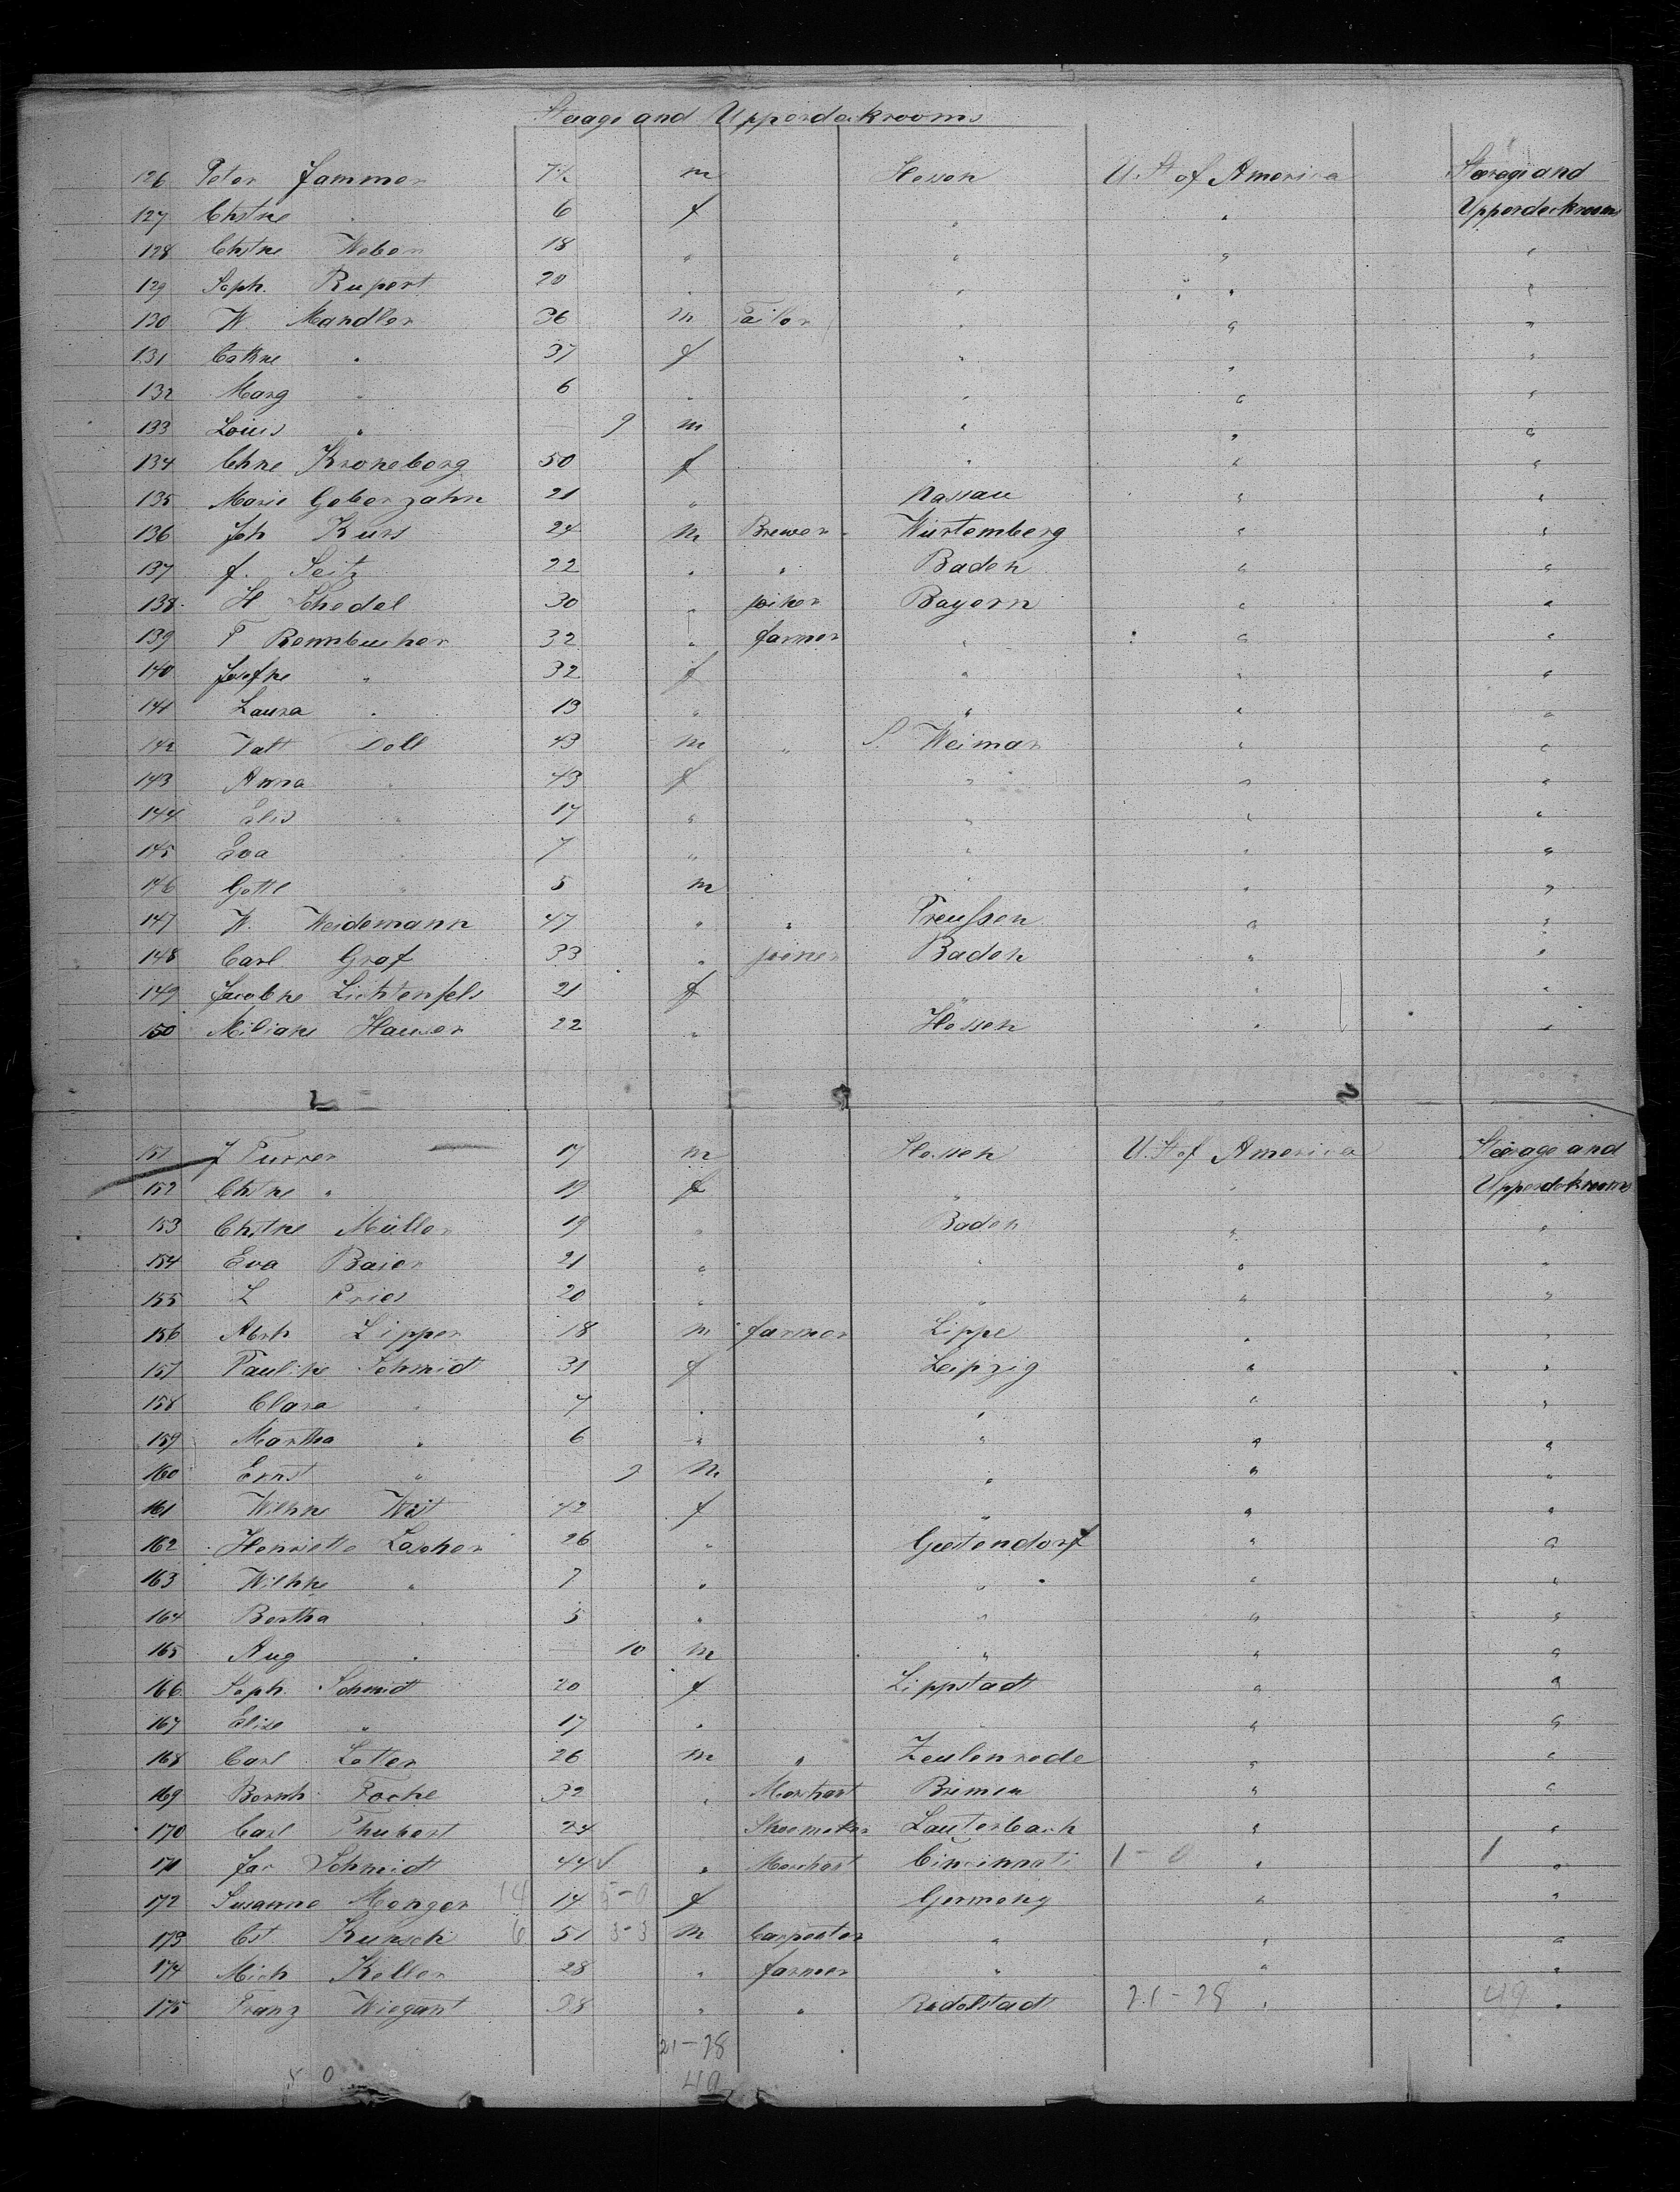 Steage and Upperdeckrooms
126 Peter Jammer 7½ m Hessen U. St of America Steerage and
127 Chstne " 6 f " " Upperdeckrooms
128 Chstne Weber 18 " " " "
129 Soph. Rupert 20 " " " "
130 W. Mandler 36 m Tailor " " "
131 Cathne " 37 f " " "
132 Marg " 6 " " " "
133 Loius " 9 m " " "
134 Chne Kroneberg 50 f " " "
135 Marie Geberzahn 21 " Nassau " "
136 Joh Kurs 24 m Brewer Würtemberg " "
137 f. Seitz 22 " " Baden " "
138 H Schedel 30 " joiner Bayern " "
139 F Rennbucher 32 " farmer " " "
140 Josefne " 32 f " " "
141 Laura " 13 " " " "
142 Valt Doll 43 m " S. Weimar " "
143 Anna " 43 f " " "
144 Elis " 17 " " " "
145 Eva " 7 " " " "
146 Gottl " 5 m " " "
147 W. Weidemann 47 " " Preussen " "
148 Carl Graf 33 " joiner Baden " "
149 Jacobne Lichtenfels 21 f " " "
150 Miliane Hauser 22 " Hessen " "
151 J Furrer 17 m Hessen U. St of America Steerage and
152 Chstne " 19 f " " Upperdekrooms
153 Chstne Müller 19 " Baden " "
154 Eva Baier 21 " " " "
155 L Fries 20 " " " "
156 Abrh Lipper 18 m farmer Lippe " "
157 Pauline Schmidt 31 f Leipzig " "
158 Clara " 7 " " " "
159 Martha " 6 " " " "
160 Ernst " 9 m " " "
161 Wilhne Weit 42 f " " "
162 Henriette Loscher 26 " Geestendorf " "
163 Wilhne " 7 " " " "
164 Bertha " 5 " " " "
165 Aug " 10 m " " "
166 Soph. Schmidt 20 f Lippstadt " "
167 Elise " 17 " " " "
168 Carl Letter 26 m " Zeulenrode " "
169 Bernh. Focke 32 " Merchant Bremen " "
170 Carl Thubert 24 Shoemaker Lauterbach " "
171 Jac Schmidt 44 √ " Merchant Cincinnati 1-0 " 1 "
172 Susanne Menger 14 14 5-0 f Germany " "
173 Cst Kunsch 6 51 3-3 m Carpenter " " "
174 Mich Keller 28 " farmer " " "
175 Franz Wiegant 38 " " Rudolstadt 21-28 " 49 "
21-28
49